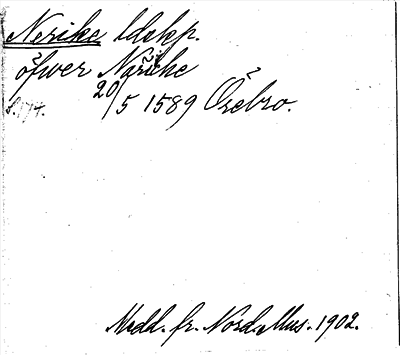 Nerike ldskp.
öfwer Närike
20/5 1589 Örebro.
S. 174.
Medd. fr. Nord. Mus. 1902.